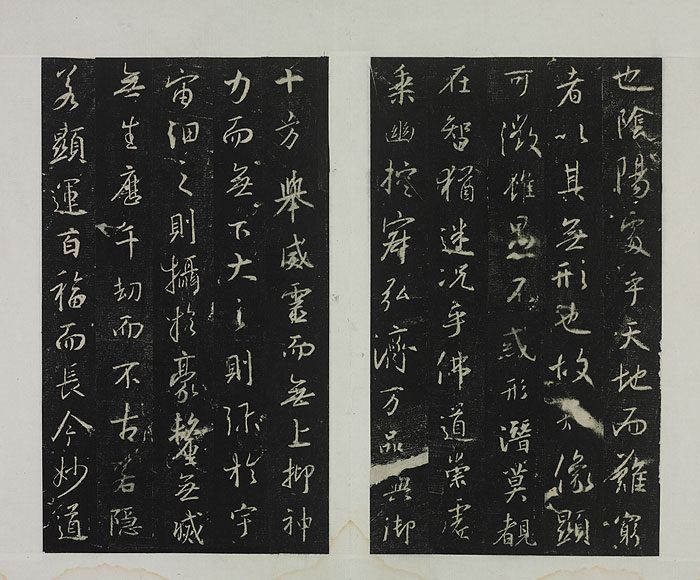 也陰陽處乎天地而難窮
者以其無形也故知像顯
可徵雖愚不惑形潛莫覩
在智猶迷況乎佛道崇虛
乘幽控寂弘濟万品典御
十方舉威靈而無上抑神
力而無下大之則彌於宇
宙細之則攝於豪氂無滅
無生歷千劫而不古若隱
若顯運百福而長今妙道